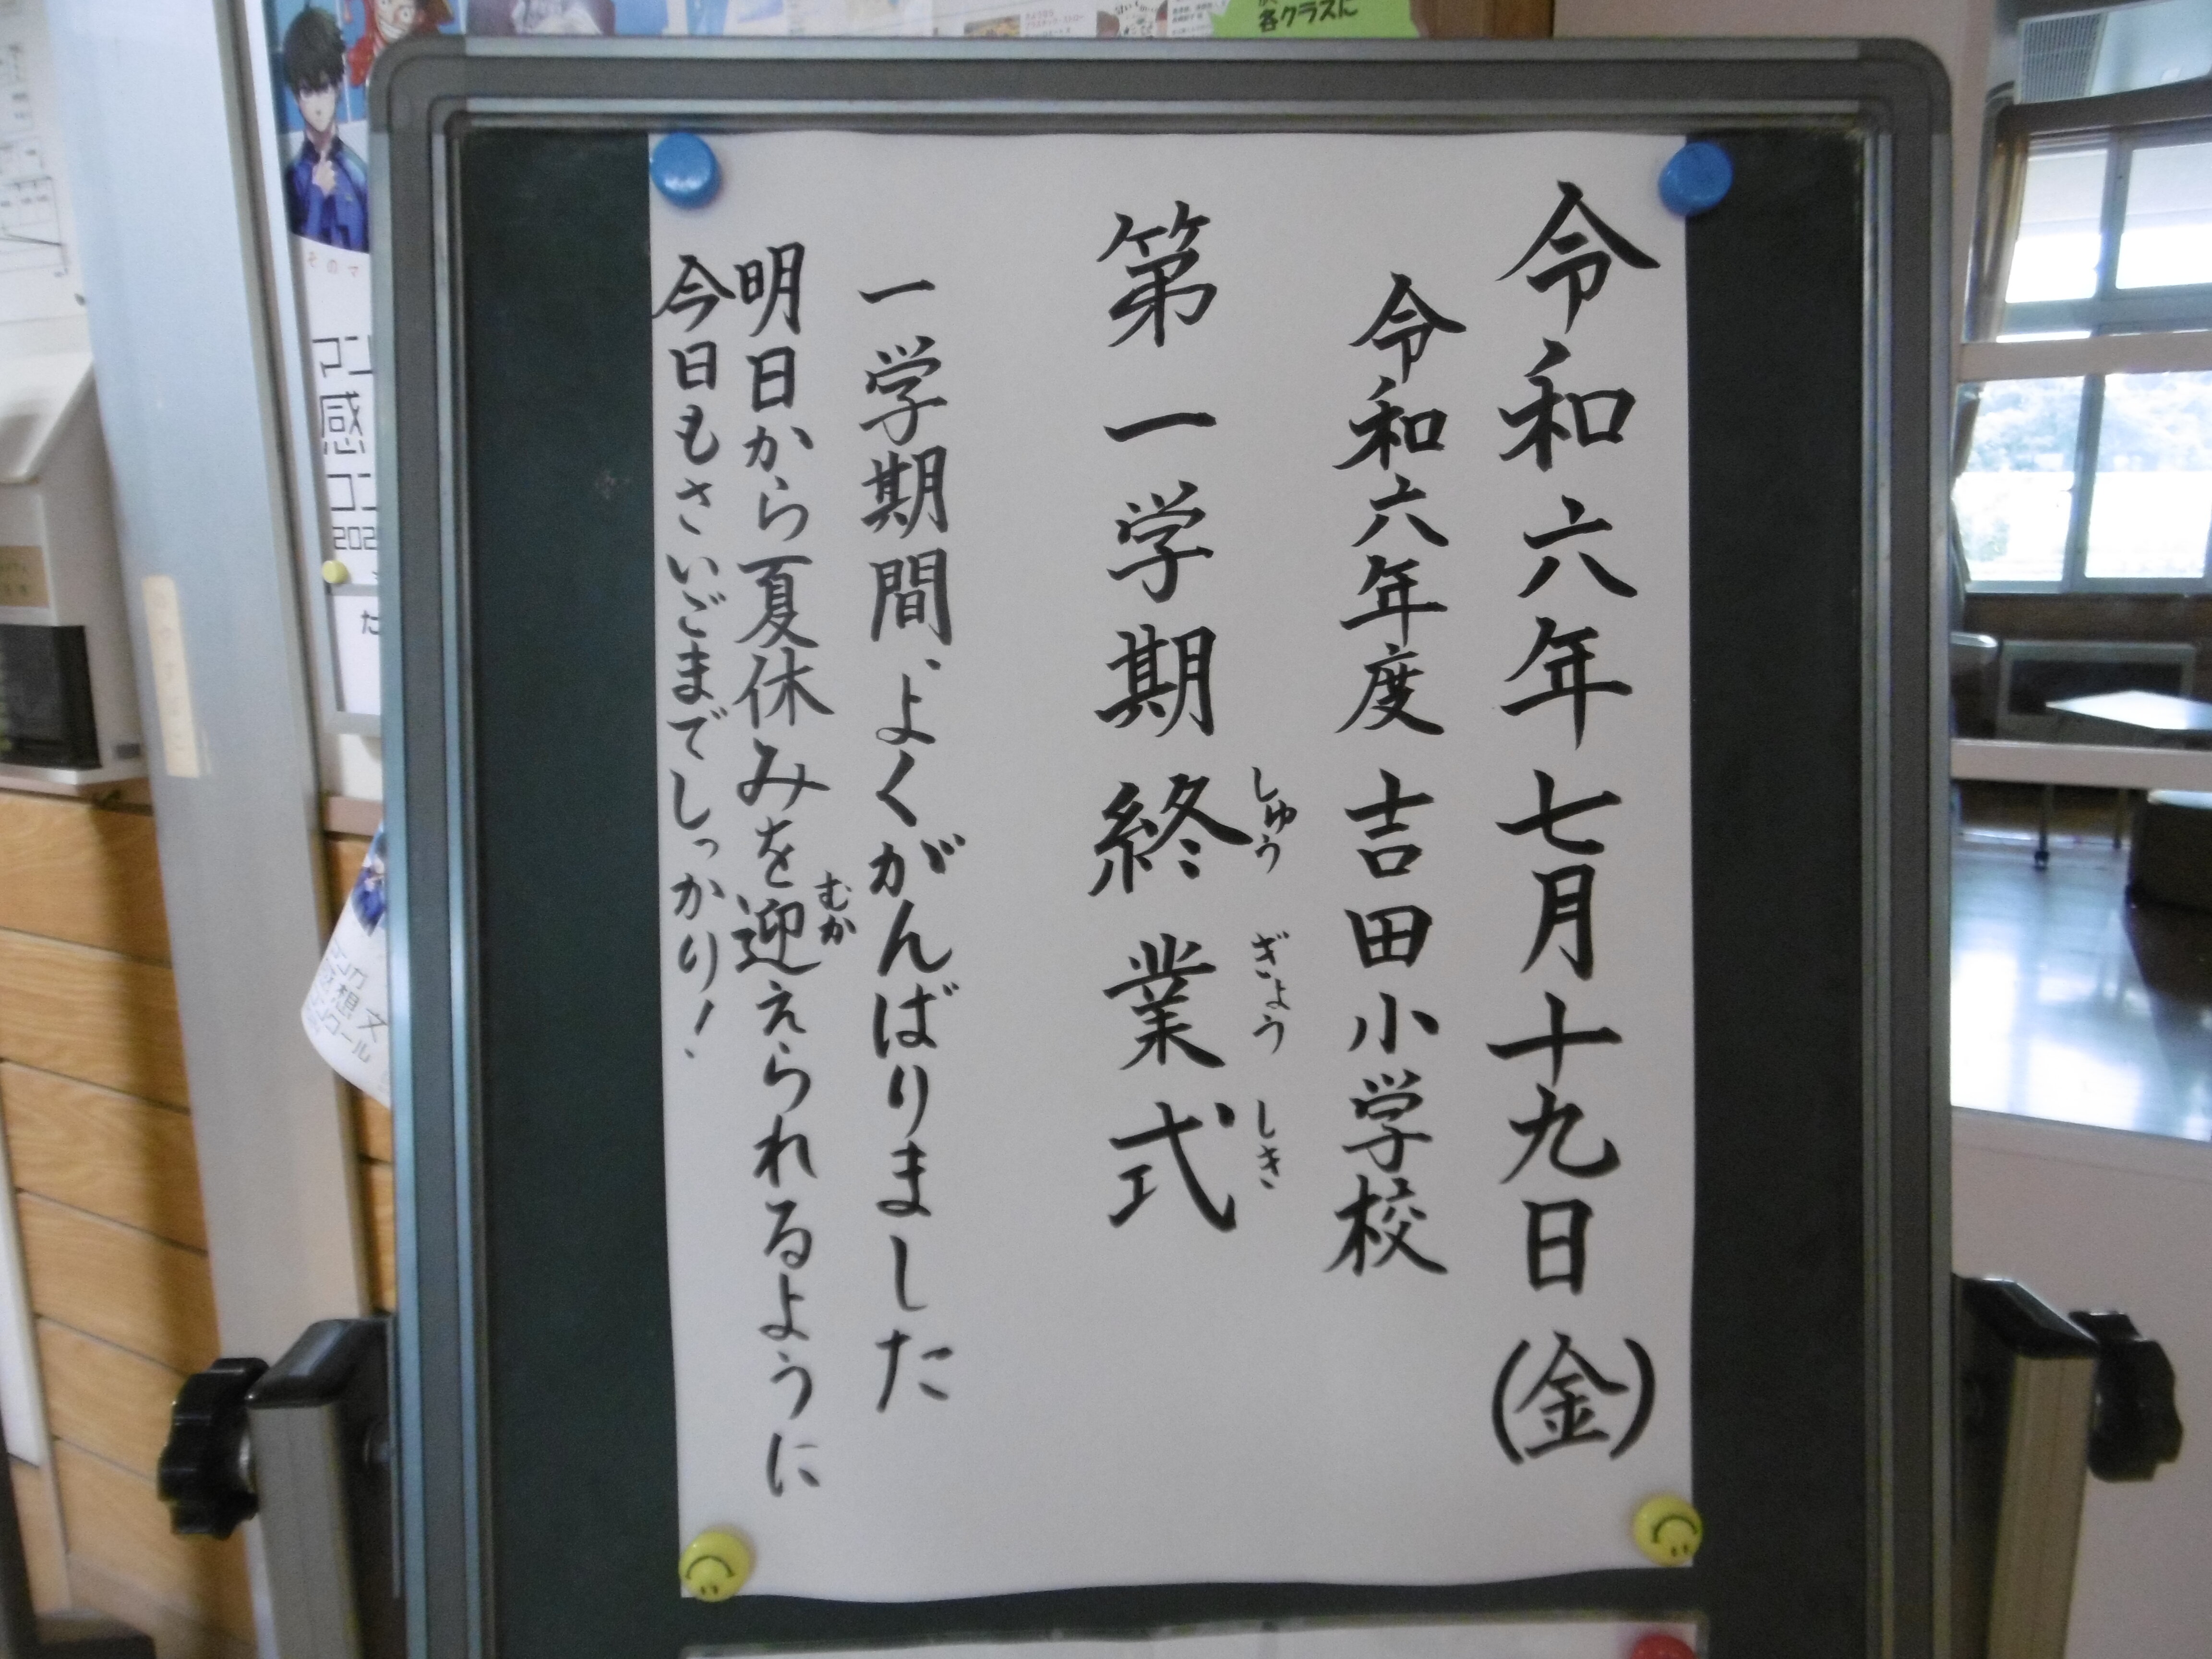 令和六年七月十九日(金)
令和六年度 吉田小学校
しゅうぎょうしき
第一学期終業式
一学期間、よくがんばりました
むか
明日から夏休みを迎えられるように
今日もさいごまでしっかり!
各クラスに
そのマ
マン
感
コン
202
た
マンガ
感想文
コンクール